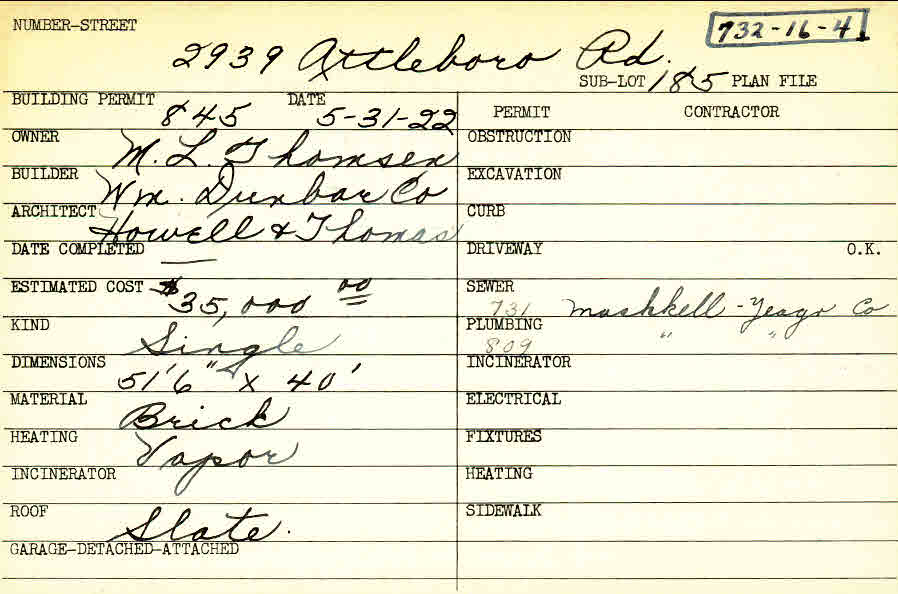 NUMBER-STREET
732-16-4
2939 Attleboro Rd.
SUB-LOT 185 PLAN FILE
BUILDING PERMIT 845 DATE 5-31-22
OWNER M. L. Thomsen
BUILDER Wm. Dunbar Co
ARCHITECT Howell & Thomas
DATE COMPLETED —
ESTIMATED COST $35,000 00
KIND Single
DIMENSIONS 51'6" x 40'
MATERIAL Brick
HEATING Vapor
INCINERATOR
ROOF Slate.
GARAGE-DETACHED-ATTACHED
PERMIT CONTRACTOR
OBSTRUCTION
EXCAVATION
CURB
DRIVEWAY O.K.
SEWER
731 Mashkell - Co
PLUMBING " "
809
INCINERATOR
ELECTRICAL
FIXTURES
HEATING
SIDEWALK